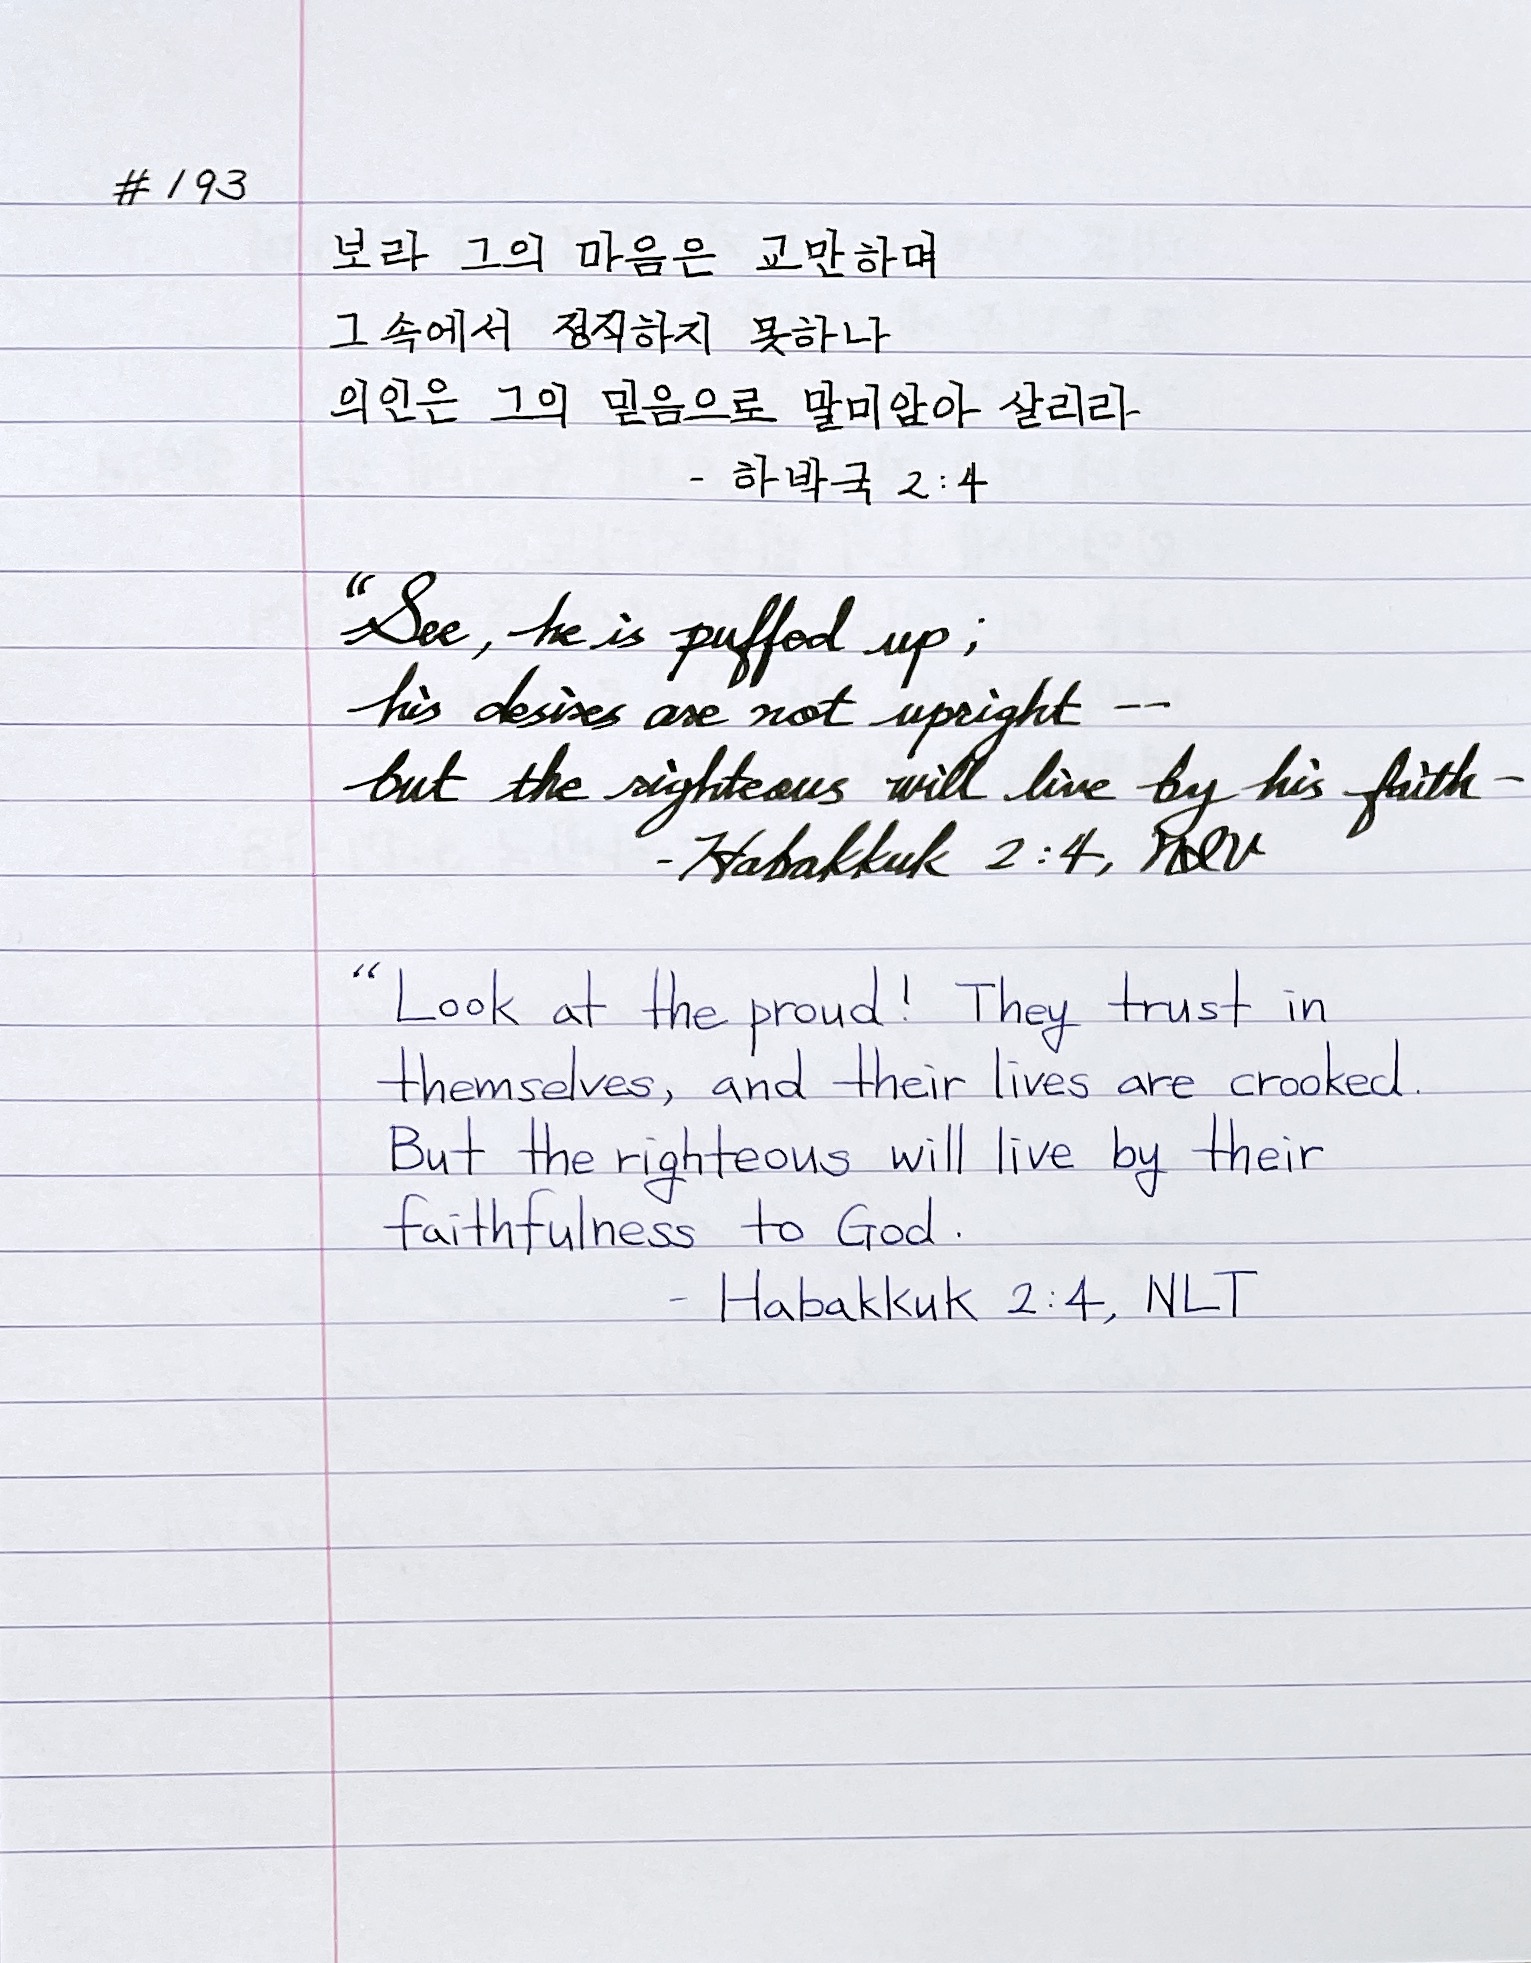 #193
보라 그의 마음은 교만하며
그 속에서 정직하지 못하나
의인은 그의 믿음으로 말미암아 살리라
- 하박국 2:4
“See, he is puffed up;
his desires are not upright --
but the righteous will live by his faith -
- Habakkuk 2:4,
“Look at the proud! They trust in
themselves, and their lives are crooked.
But the righteous will live by their
faithfulness to God.
- Habakkuk 2:4, NLT